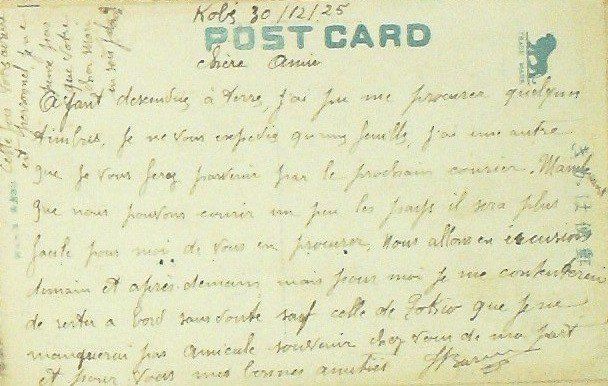 Kobé 30/12/25
POST CARD
TRADE MARK
chère Amie
Ayant descendu à terre, j'ai pu me procurer quelques
timbres, je ne vous expédie qu'une feuille, j'ai une autre
que je vous ferez parvenir par le prochain courrier. Maintenant
que nous pouvons courir un peu les pays il sera plus
facile pour moi de vous en procurer. Nous allons en excursion
demain et après-demain mais pour moi je me contenterai
de rester a bord sans doute sauf celle de Tokio que je ne
manquerai pas amicale souvenir chez vous de ma part
et pour vous mes bonnes amitiés
cette fois
est personnel je ne
pense pas
que votre
bon Mary